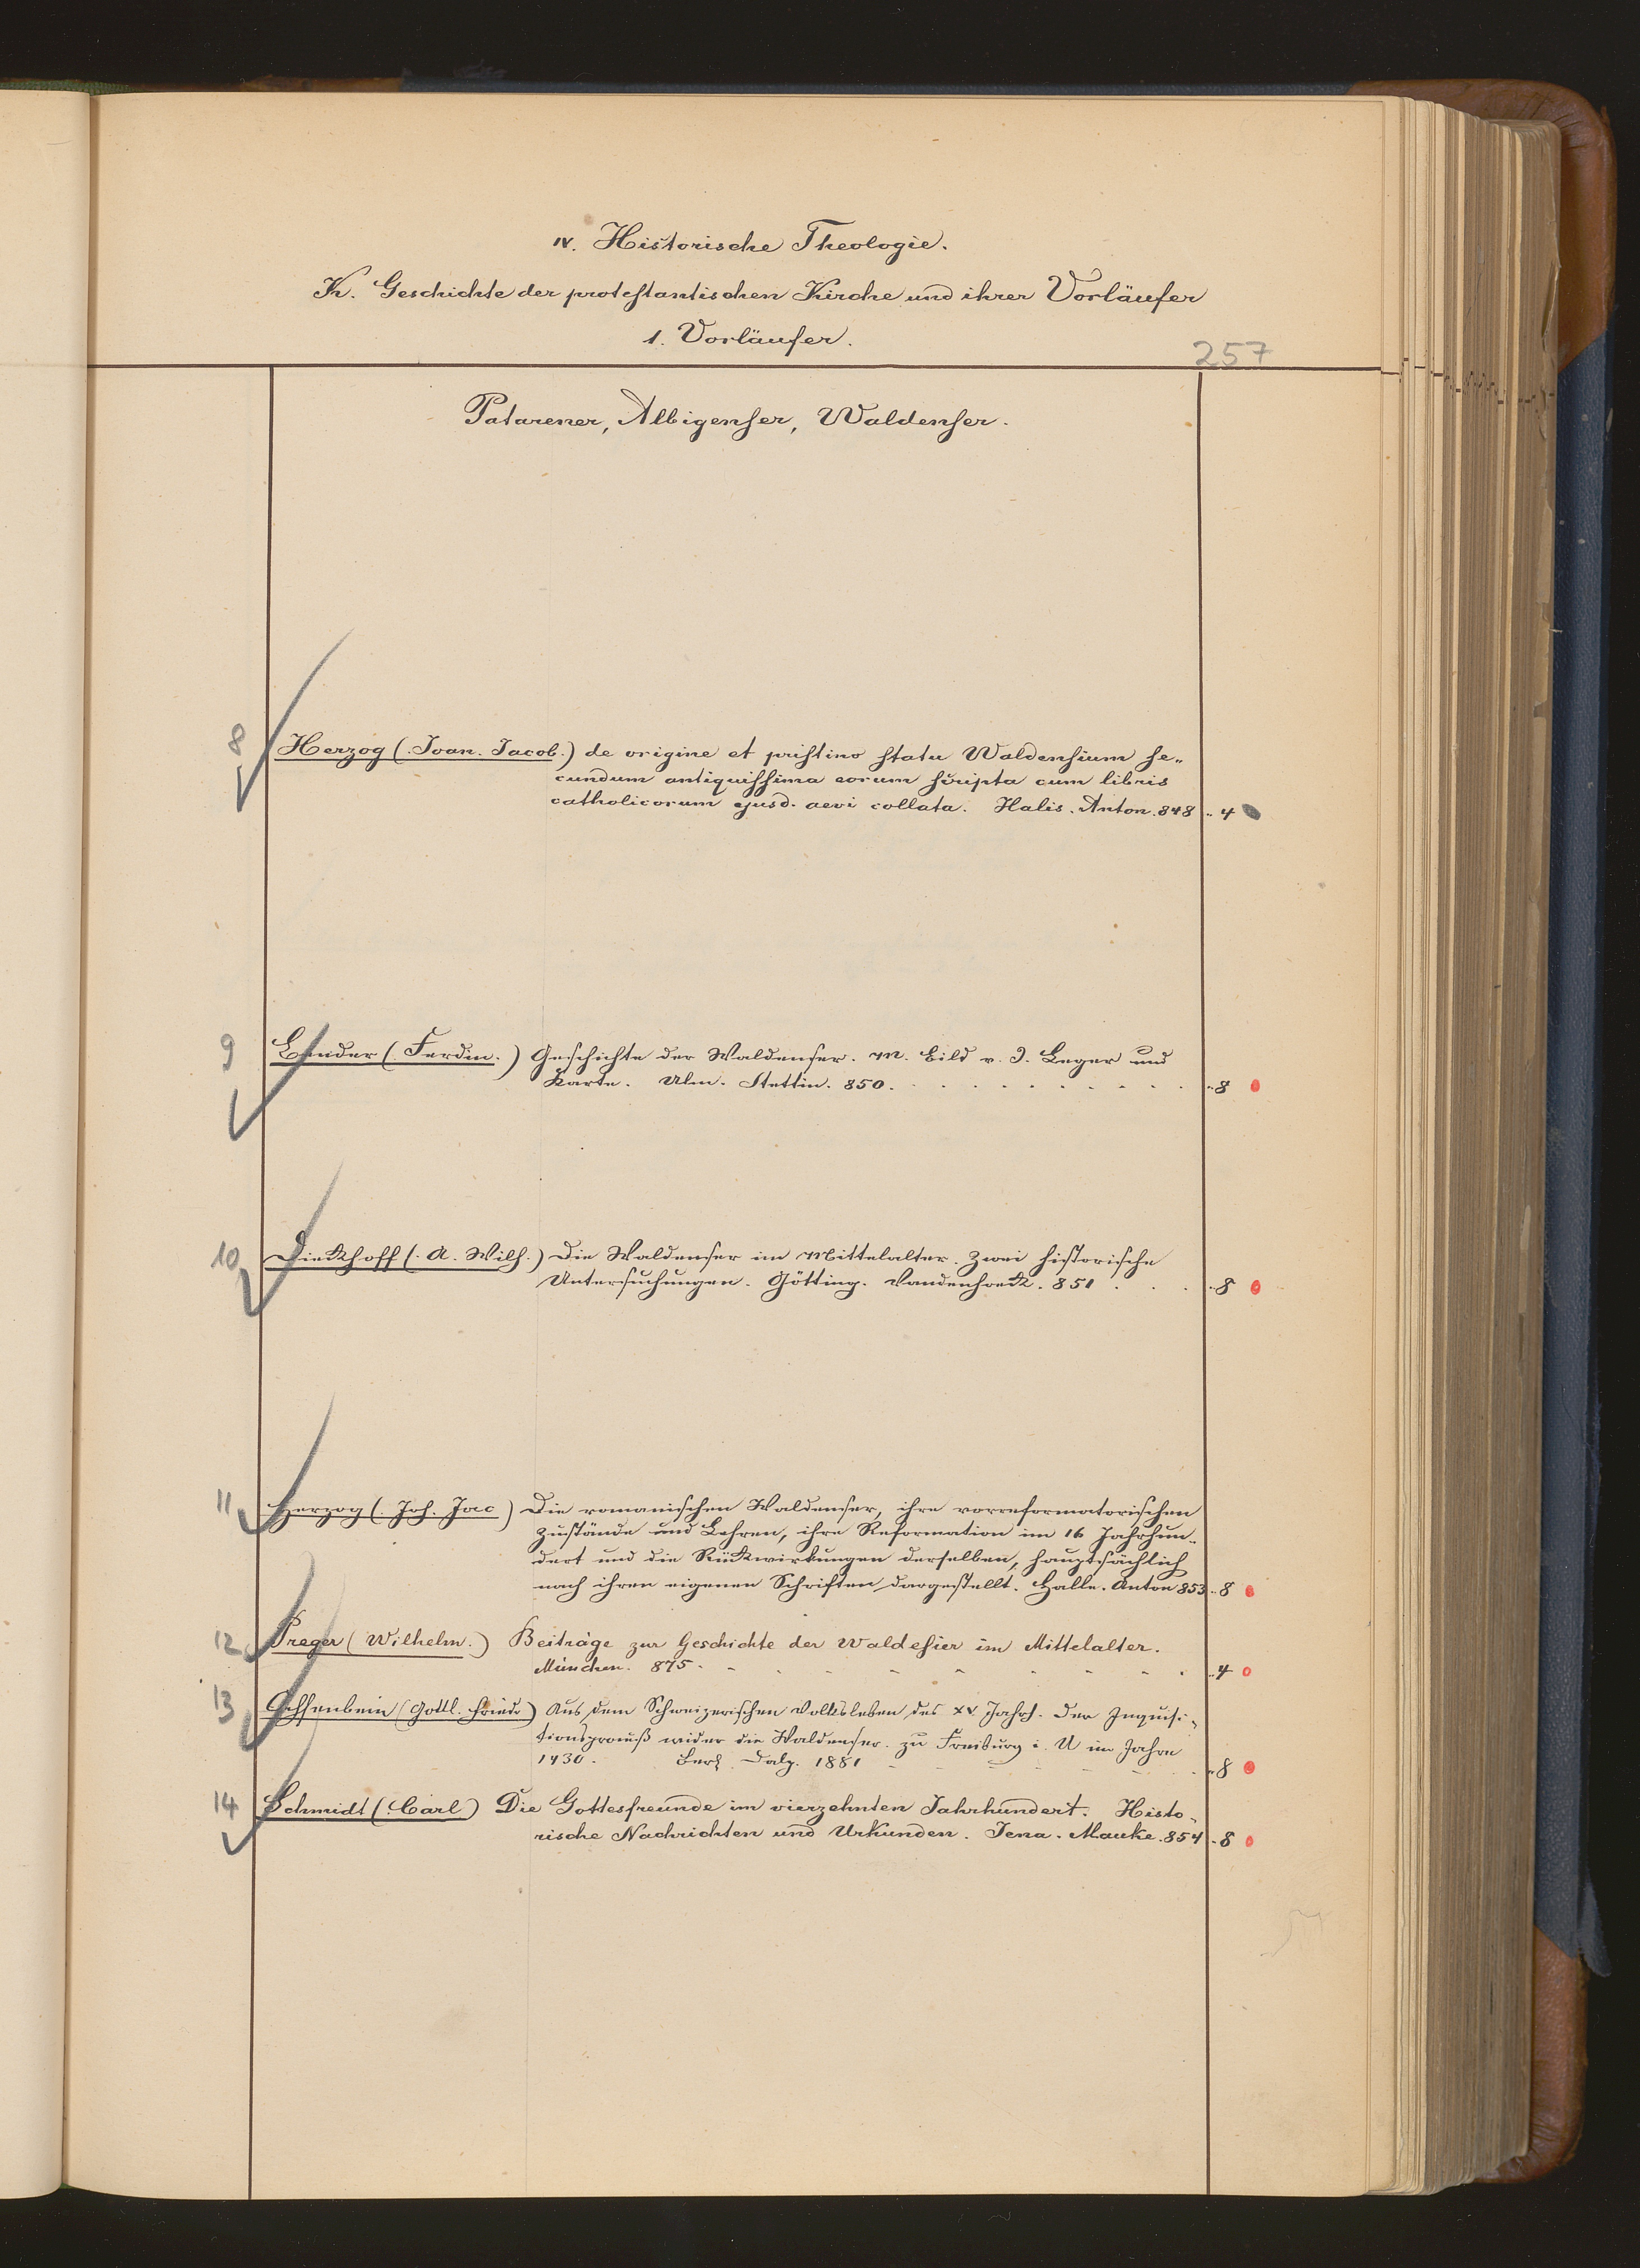 IV. Historische Theologie.
K. Geschichte der protestantischen Kirche und ihrer Vorläufer
1. Vorläufer.
257
Patarener, Albigenser, Waldenser.
8 Herzog (Ioan. Iacob.) de origine et pristino statu Waldensium se„
cundum antiquissima eorum scripta cum libris
catholicorum ejusd. aevi collata. Halis. Anton. 848 .. 4
9 Bender (Ferdin.) Geschichte der Waldenser. M. Bild v. J. Leger und
Karte. Ulm. Stettin. 850. .. 8
10 Dieckhoff (A. Wilh.) Die Waldenser im Mittelalter. Zwei historische
Untersuchungen. Götting. Vandenhoeck. 851 . . . .. 8
11 Herzog (Joh. Jac) Die romanischen Waldenser, ihre vorreformatorischen
Zustände und Lehren, ihre Reformation im 16 Jahrhun„
dert und die Rückwirkungen derselben, hauptsächlich
nach ihren eigenen Schriften dargestellt. Halle. Anton 853 .. 8
12 Preger (Wilhelm.) Beiträge zur Geschichte der Waldesier im Mittelalter.
München. 875. .. 4
13 Ochsenbein (Gottl. Friedr) Aus dem Schweizerischen Volksleben des XV. Jahrh. Der Inquisi„
tionsproceß wider die Waldenser zu Freiburg i. U im Jahre
1430. Bern. Dalp. 1881 .. 8
14 Schmidt (Carl) Die Gottesfreunde im vierzehnten Jahrhundert. Histo„
rische Nachrichten und Urkunden. Jena. Mauke. 854 .. 8